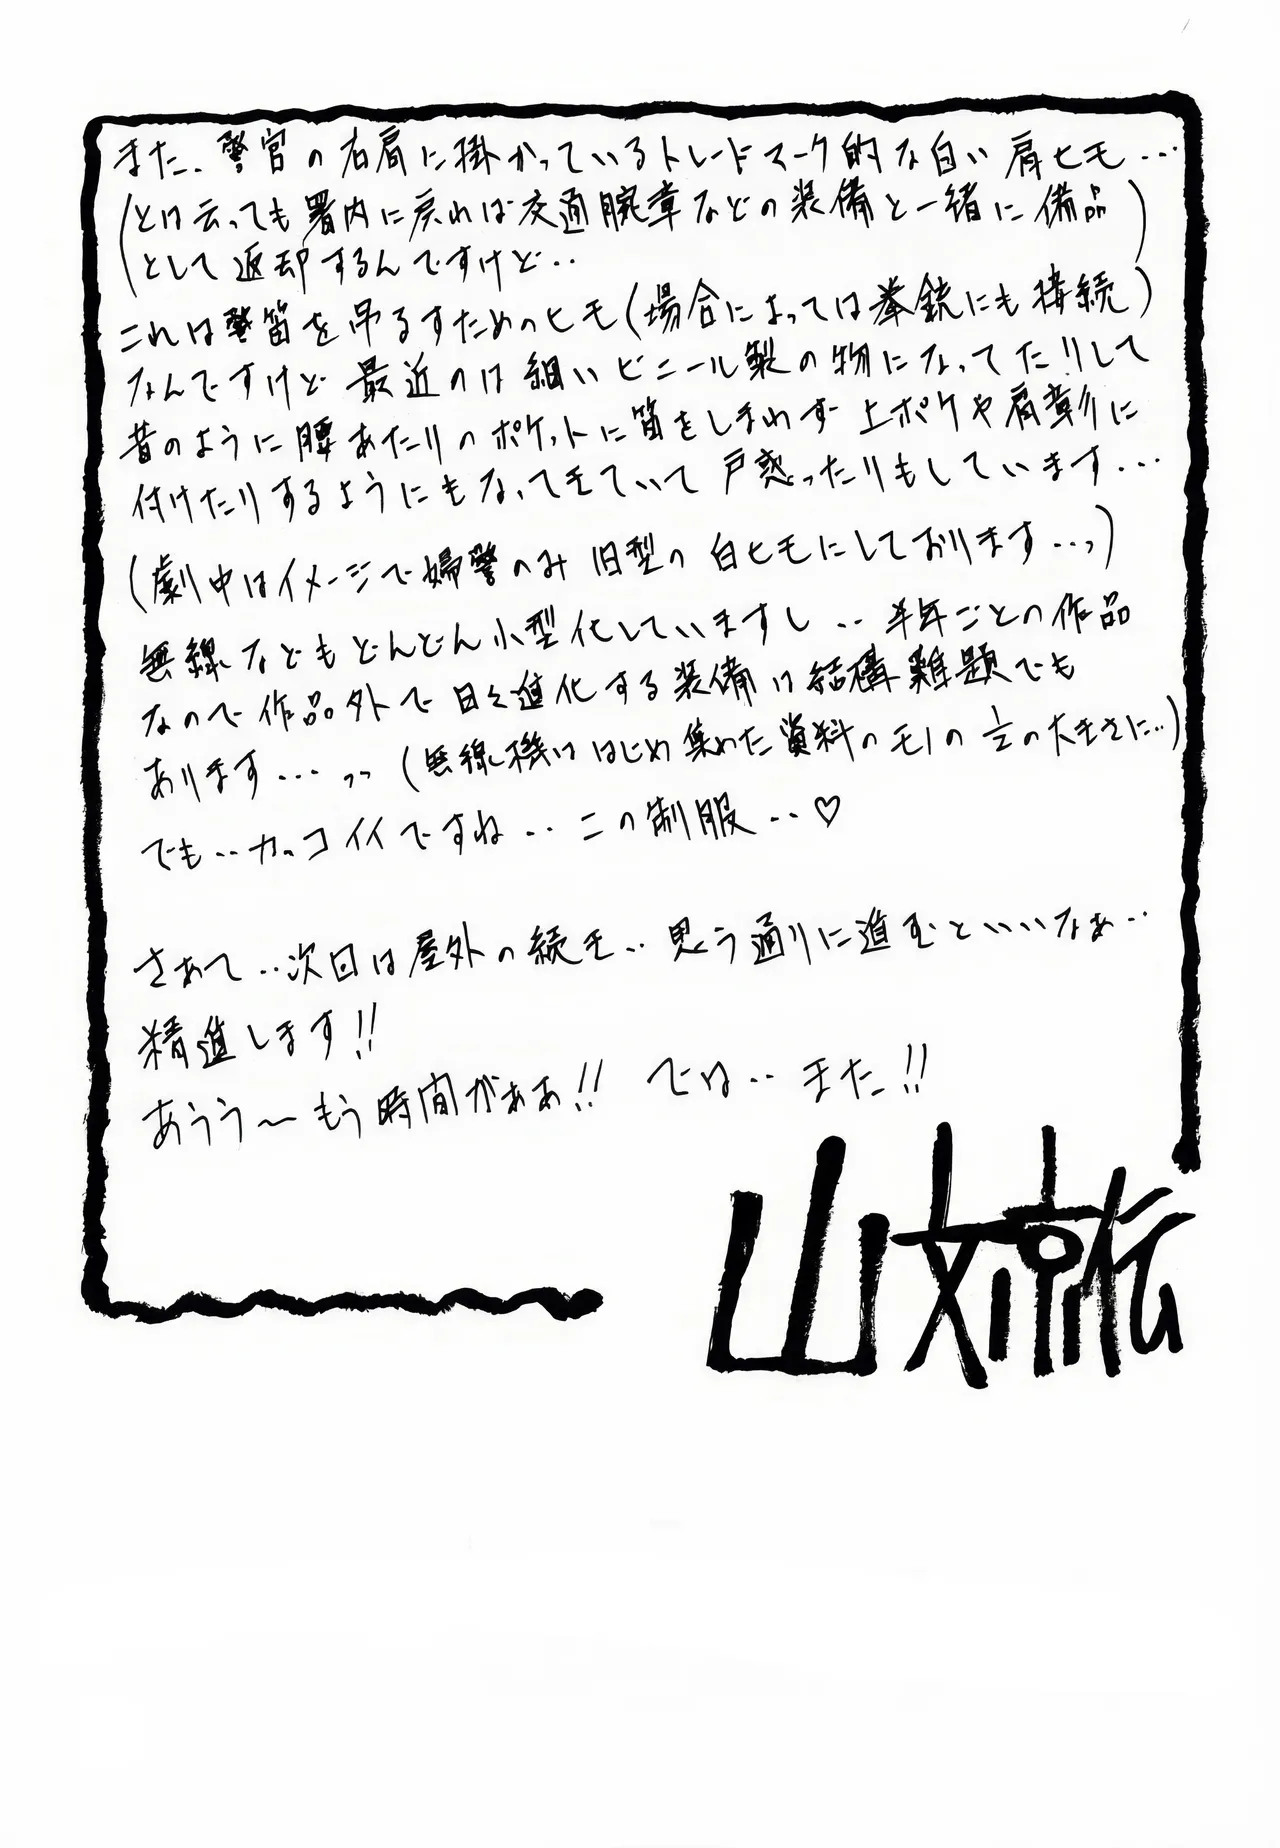 また、警官の右肩に掛かっているトレードマーク的な白い肩ヒモ…
(とは云っても署内に戻れば交通腕章などの装備と一緒に備品
として返却するんですけど‥)
これは警笛を吊るすためのヒモ(場合によっては拳銃にも接続)
なんですけど最近のは細いビニール製の物になってたりして
昔のように腰あたりのポケットに笛をしまわず上ポケや肩章に
付けたりするようにもなってきていて戸惑ったりもしています…
(劇中はイメージで婦警のみ旧型の白ヒモにしております…っ)
無線などもどんどん小型化していますし‥半年ごとの作品
なので作品外で日々進化する装備は結構難題でも
あります…っっ(無線機ははじめ集めた資料のモノの½の大きさに…)
でも‥カッコイイですね‥この制服‥♡
さあて‥次回は屋外の続き‥思う通りに進むといいなぁ‥
精進します!!
あうう〜もう時間がぁぁ!! では‥また!!
山文京伝